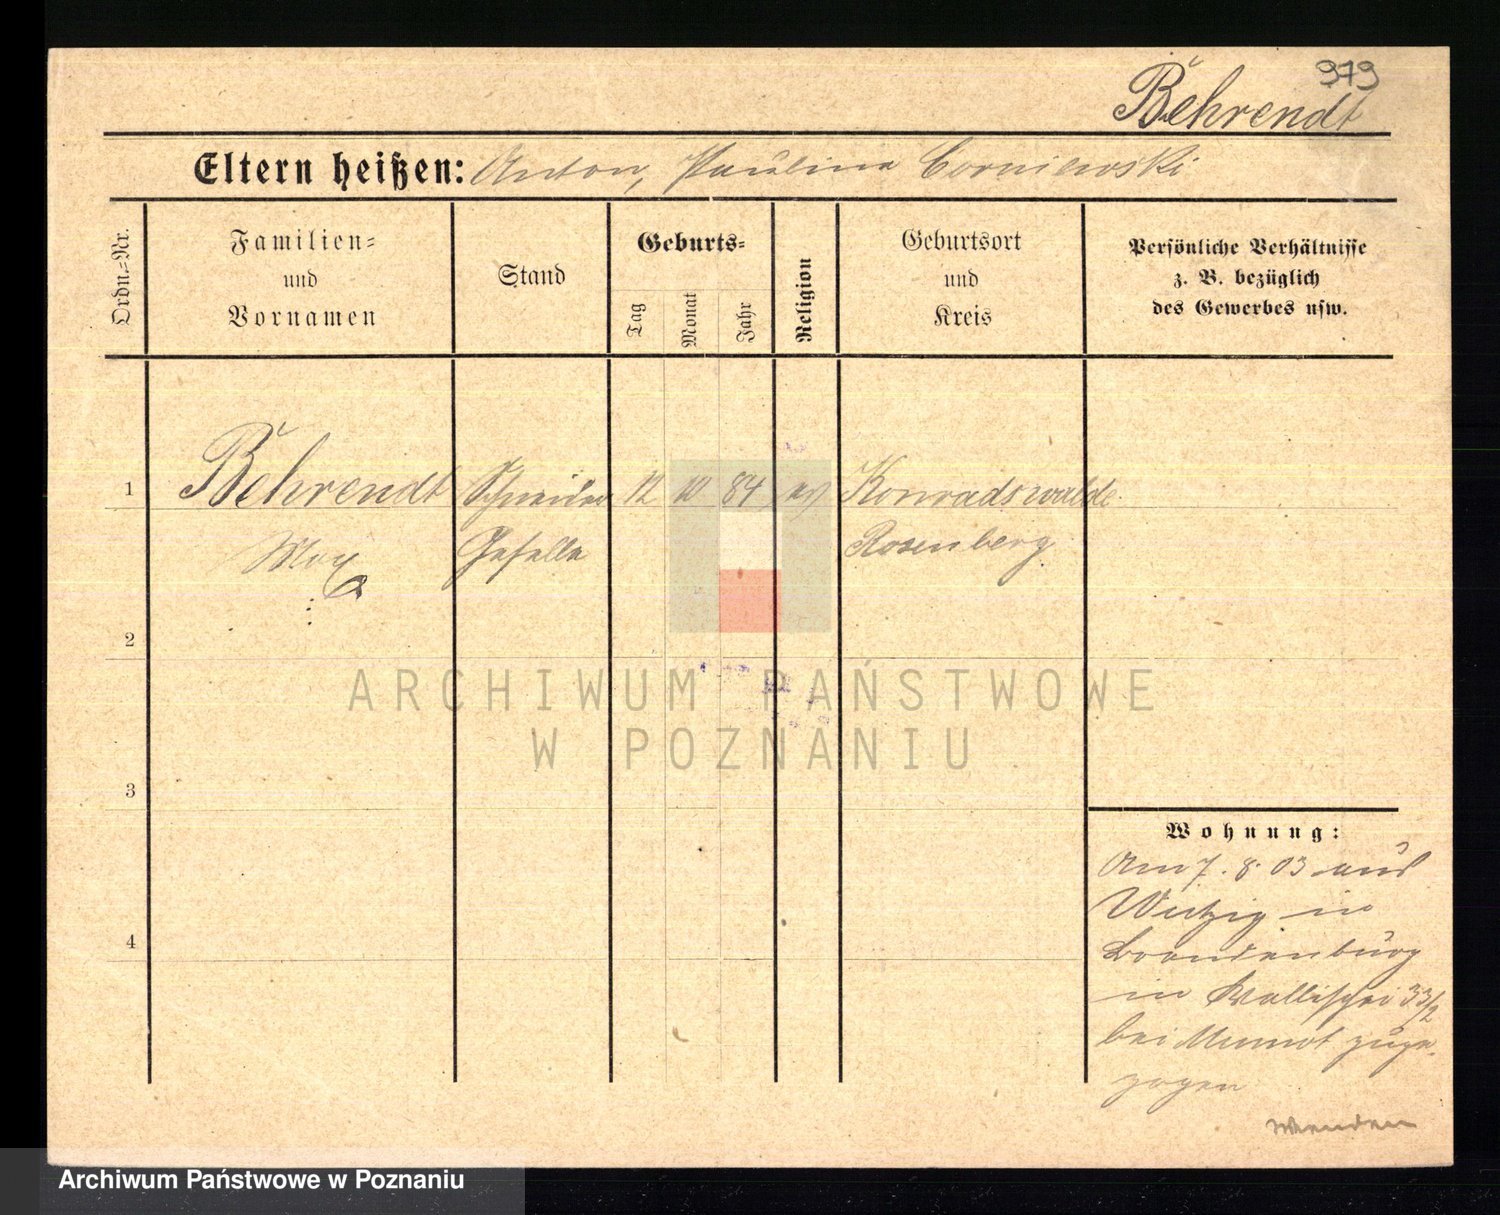 979
Behrendt
Eltern heißen: Anton, Paulina Cornilewski
Ordn.=Nr.
Familien=
und
Vornamen
Stand
Geburts=
Tag
Monat
Jahr
Religion
Geburtsort
und
Kreis
Persönliche Verhältnisse
z. B. bezüglich
des Gewerbes usw.
1
Behrendt Schneider 12 10 84 ev Konradswalde
Max Geselle Rosenberg
2
ARCHIWUM PAŃSTWOWE
W POZNANIU
3
4
Wohnung:
Am 7. 8. 03 aus
in
Brandenburg
in Wallischei 33/2
bei zuge-
zogen
Wenden
Archiwum Państwowe w Poznaniu